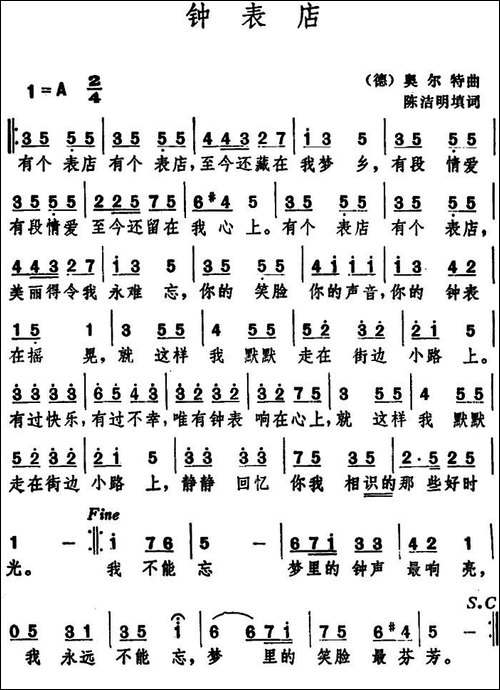 钟表店
1=A 2/4
（德）奥尔特曲
陈洁明填词
35 55 35 55 4432 7 i3 5 35 55
有个 表店 有个 表店，至今还藏在 我梦 乡，有段 情爱
3555 2257 5 6#4 5 35 55 35 55
有段情爱 至今还留在 我心 上。有个 表店 有个 表店，
4432 7 i3 5 35 55 4i i i i3 42
美丽得令我 永难 忘，你的 笑脸 你的声音，你的 钟表
15 1 3 55 4 55 52 32 2i 5
在摇 晃，就 这样 我 默默 走在 街边 小路 上。
33 33 65 43 32 32 27 5 3 55 4 55
有过快乐，有过不幸，唯有钟表 响在心上，就 这样 我 默默
52 32 2i 5 35 55 35 35 2·5 25
走在街边 小路 上，静静 回忆 你我 相识的那 些好时
Fine
1 － i 76 5 － 67i 33 42 1
光。 我 不能 忘 梦里的 钟声 最响 亮，
S.C
05 31 35 i 6 67i 55 6#4 5
我 永远 不能 忘，梦 里的 笑脸 最 芬芳。